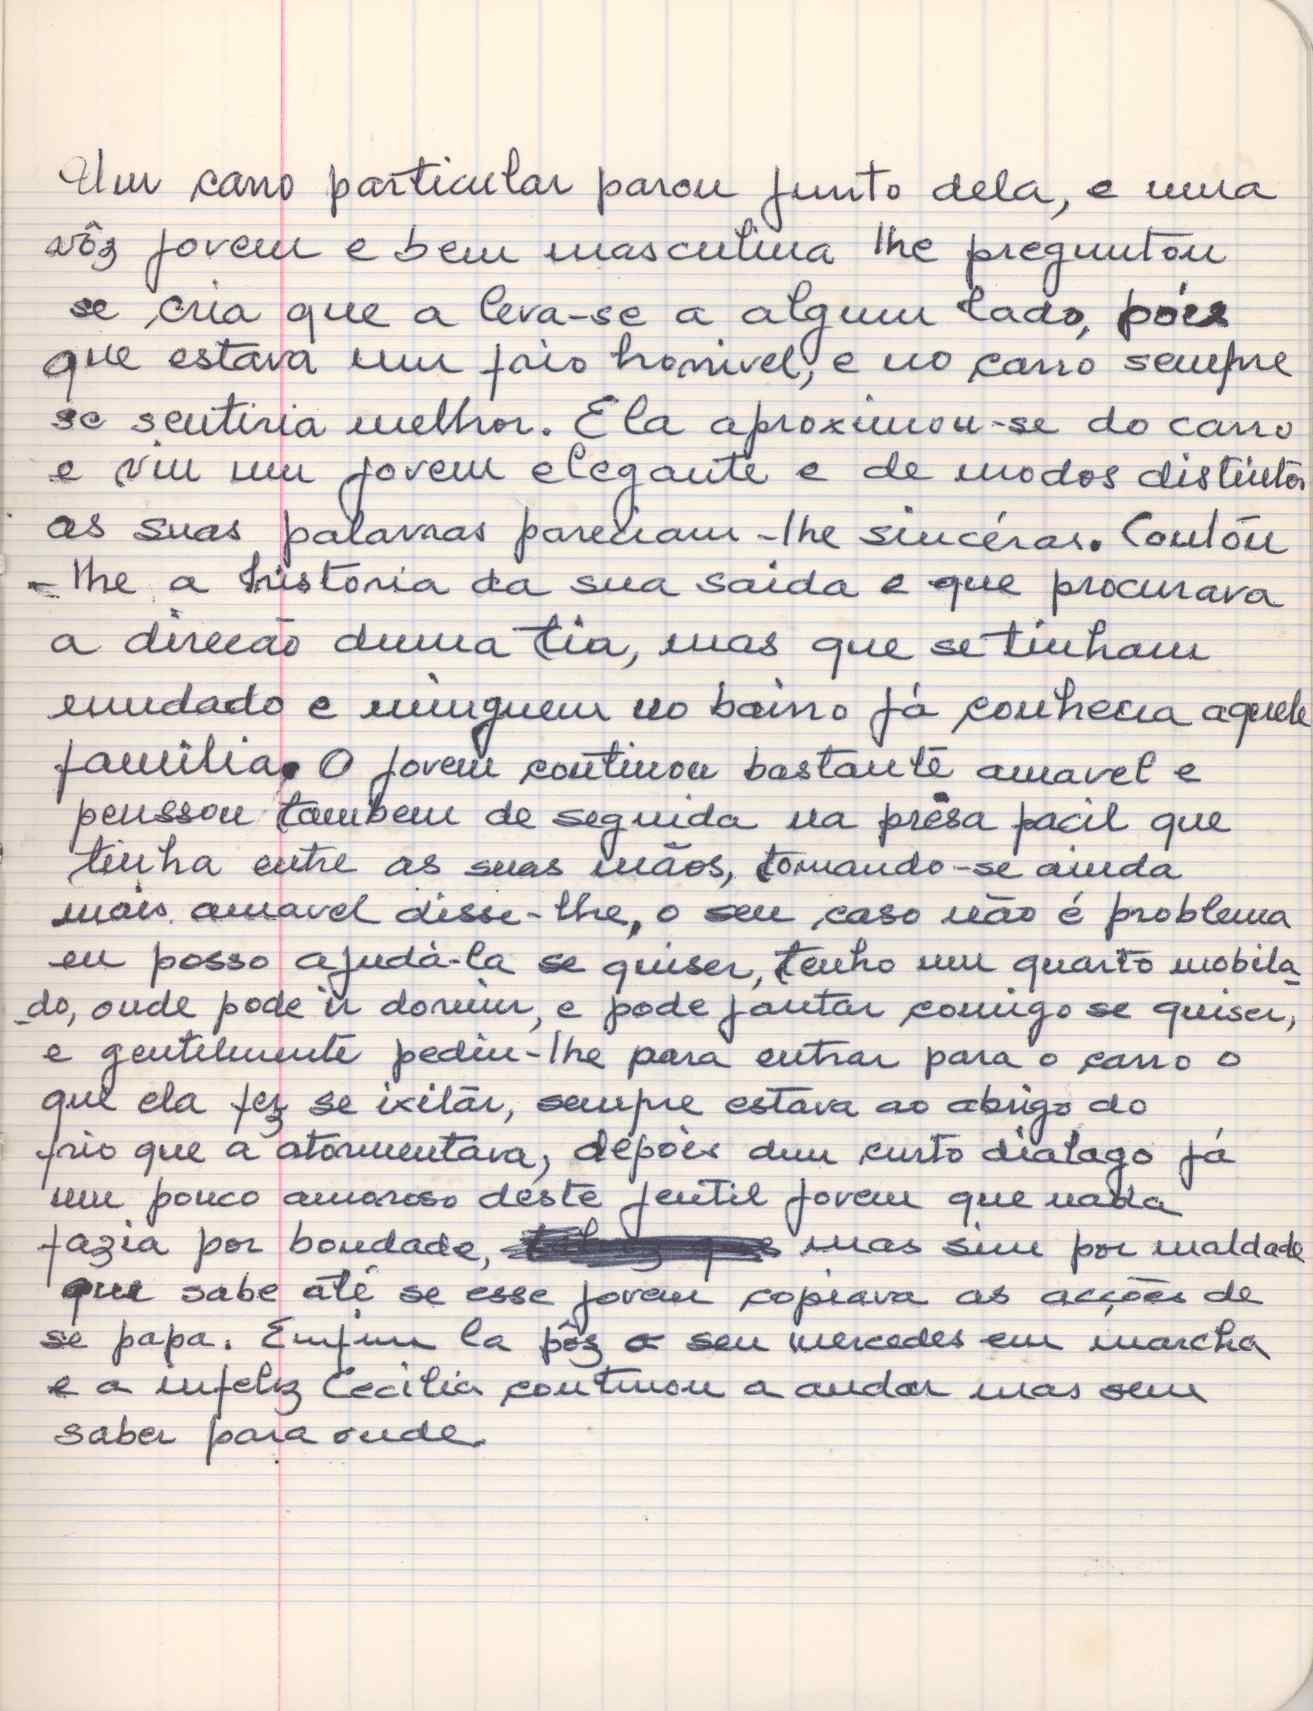 Um carro particular parou junto dela, e uma
vôz jovem e bem masculina lhe preguntou
se cria que a leva-se a algum lado, póis
que estava um frio horrivel, e no carro sempre
se sentiria melhor. Ela aproximou-se do carro
e viu um jovem elegante e de modos distintos
as suas palavras pareciam-lhe sincéras. Contou
-lhe a historia da sua saida e que procurava
a direcão duma tia, mas que se tinham
mudado e ninguem no bairro já conhecia aquela
familia. O jovem continou bastante amavel e
penssou tambem de seguida na prêsa facil que
tinha entre as suas mãos, tornando-se ainda
mais amavel disse-lhe, o seu caso não é problema
eu posso ajudá-la se quiser, tenho um quarto mobila
-do, onde pode ir dormir, e pode jantar comigo se quiser,
e gentilmente pediu-lhe para entrar para o carro o
que ela fez se ixitár, sempre estava ao abrigo do
frio que a atormentava, depois dum curto dialago já
um pouco amoroso deste jentil jovem que nada
fazia por bondade, mas sim por maldade
que sabe até se esse jovem copiava as acções de
se papa. Emfim la pôz o seu mercedes em marcha
e a infeliz Cecilia continou a andar mas sem
saber para onde.